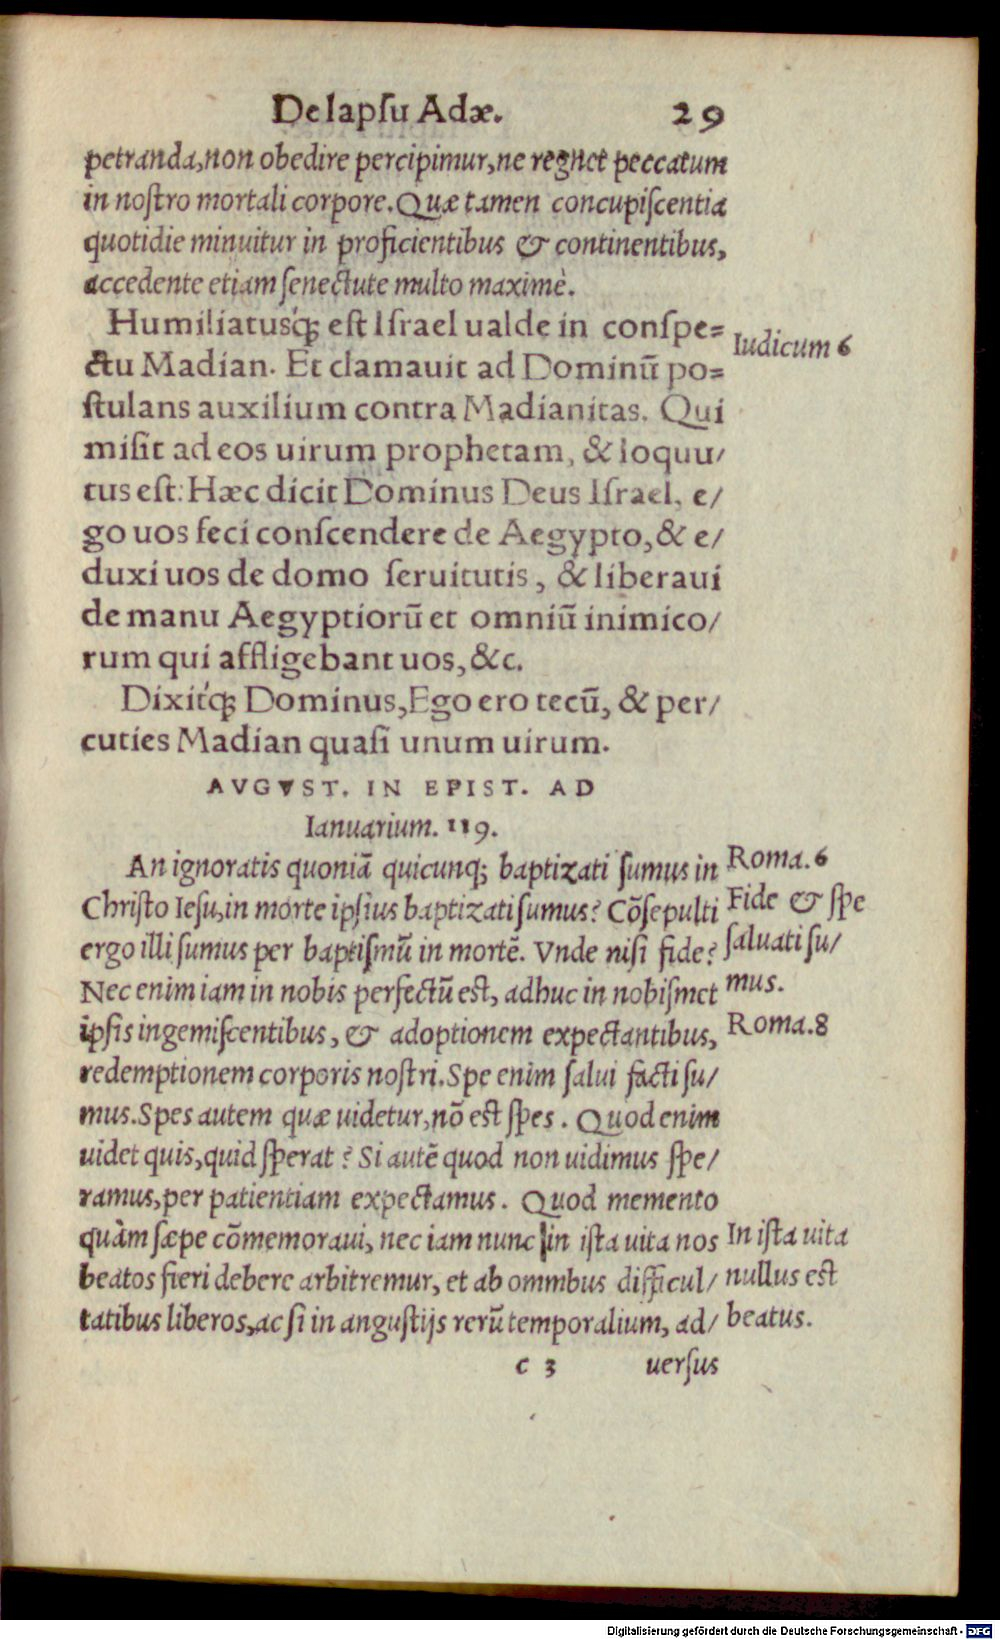 De lapſu Adæ. 29
petranda, non obedire percipimur, ne regnet peccatum
in noſtro mortali corpore. Quæ tamen concupiſcentia
quotidie minuitur in proficientibus & continentibus,
accedente etiam ſenectute multo maximè.
Humiliatusq́; eſt Iſrael ualde in conſpe=
ctu Madian. Et clamauit ad Dominū po=
ſtulans auxilium contra Madianitas. Qui
miſit ad eos uirum prophetam, & loquu/
tus eſt: Hæc dicit Dominus Deus Iſrael, e/
go uos feci conſcendere de Aegypto, & e/
duxi uos de domo ſeruitutis, & liberaui
de manu Aegyptiorū et omniū inimico/
rum qui affligebant uos, &c.
Dixitq́; Dominus, Ego ero tecū, & per/
cuties Madian quaſi unum uirum.
AVGVST. IN EPIST. AD
Ianuarium. 119.
An ignoratis quoniā quicunq; baptizati ſumus in
Chriſto Ieſu, in morte ipſius baptizati ſumus? Cōſepulti
ergo illi ſumus per baptiſmū in mortē. Vnde niſi fide?
Nec enim iam in nobis perfectū eſt, adhuc in nobiſmet
ipſis ingemiſcentibus, & adoptionem expectantibus,
redemptionem corporis noſtri. Spe enim ſalui facti ſu/
mus. Spes autem quæ uidetur, nō eſt ſpes. Quod enim
uidet quis, quid ſperat? Si autē quod non uidimus ſpe/
ramus, per patientiam expectamus. Quod memento
quàm ſæpe cōmemoraui, nec iam nunc in iſta uita nos
beatos fieri debere arbitremur, et ab omnibus difficul/
tatibus liberos, ac ſi in anguſtijs rerū temporalium, ad/
c 3 uerſus
Iudicum 6
Roma. 6
Fide & ſpe
ſaluati ſu/
mus.
Roma. 8
In iſta uita
nullus eſt
beatus.
Digitalisierung gefördert durch die Deutsche Forschungsgemeinschaft - DFG